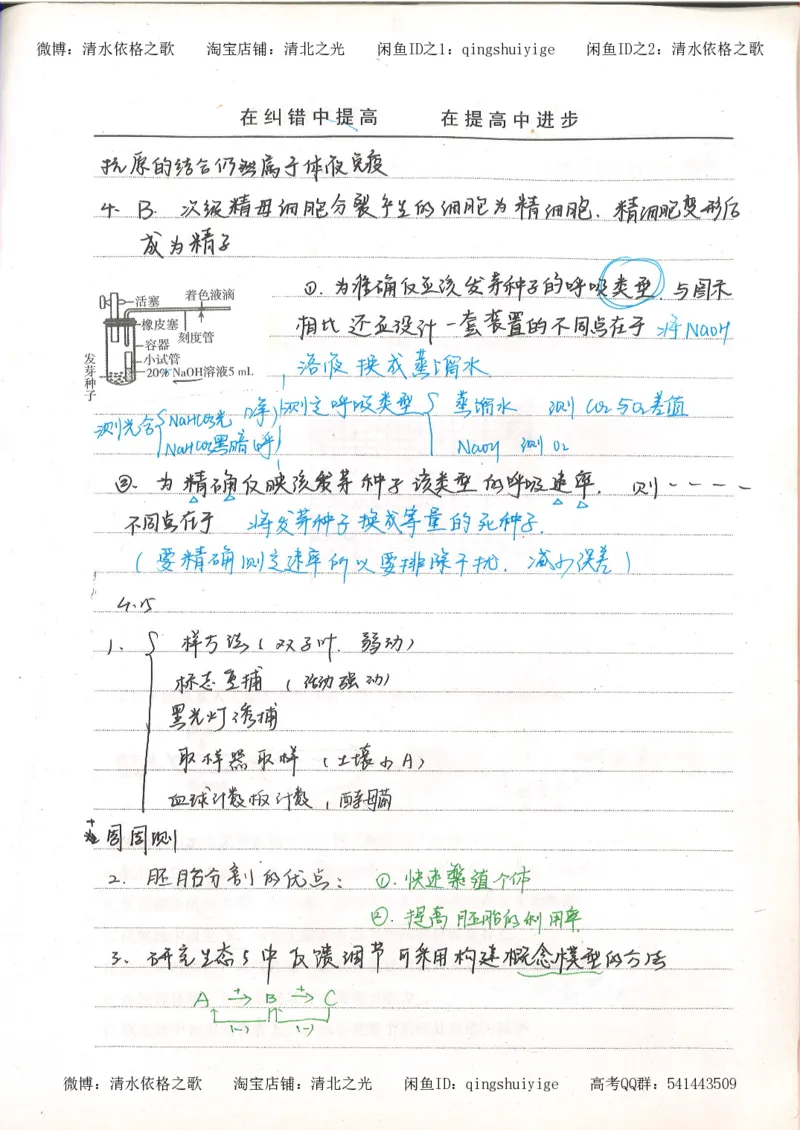 微博：清水依格之歌 淘宝店铺：清北之光 闲鱼ID之1：qingshuiyige 闲鱼ID之2：清水依格之歌
在纠错中提高 在提高中进步
抗原的结合仍然属于体液免疫
4. B. 次级精母细胞分裂产生的细胞为精细胞，精细胞变形后
成为精子
活塞
着色液滴
橡皮塞
刻度管
容器
小试管
20% NaOH溶液5 mL
发芽种子
①. 为准确仅亚该发芽种子的呼吸类型，与图示
相比还亚设计一套装置的不同点在于 将NaOH
溶液换成蒸馏水
测光合{ NaHCO3光 净
NaHCO3黑暗 呼
测定呼吸类型{ 蒸馏水 测CO2与O2差值
NaOH 测O2
②. 为精确仅映该发芽种子该类型的呼吸速率，则----
不同点在于 将发芽种子换成等量的死种子.
（要精确测定速率所以要排除干扰，减少误差）
4.15
1. { 样方法（双子叶. 弱动）
标志重捕（活动强动）
黑光灯诱捕
取样器取样（土壤小A）
血球计数板计数，酵母菌
2. 胚胎分割的优点： ①. 快速繁殖个体
②. 提高胚胎的利用率
3. 研究生态s中反馈调节可采用构建概念模型的方法
A +→ B +→ C
(-) (-)
微博：清水依格之歌 淘宝店铺：清北之光 闲鱼ID：qingshuiyige 高考QQ群：541443509